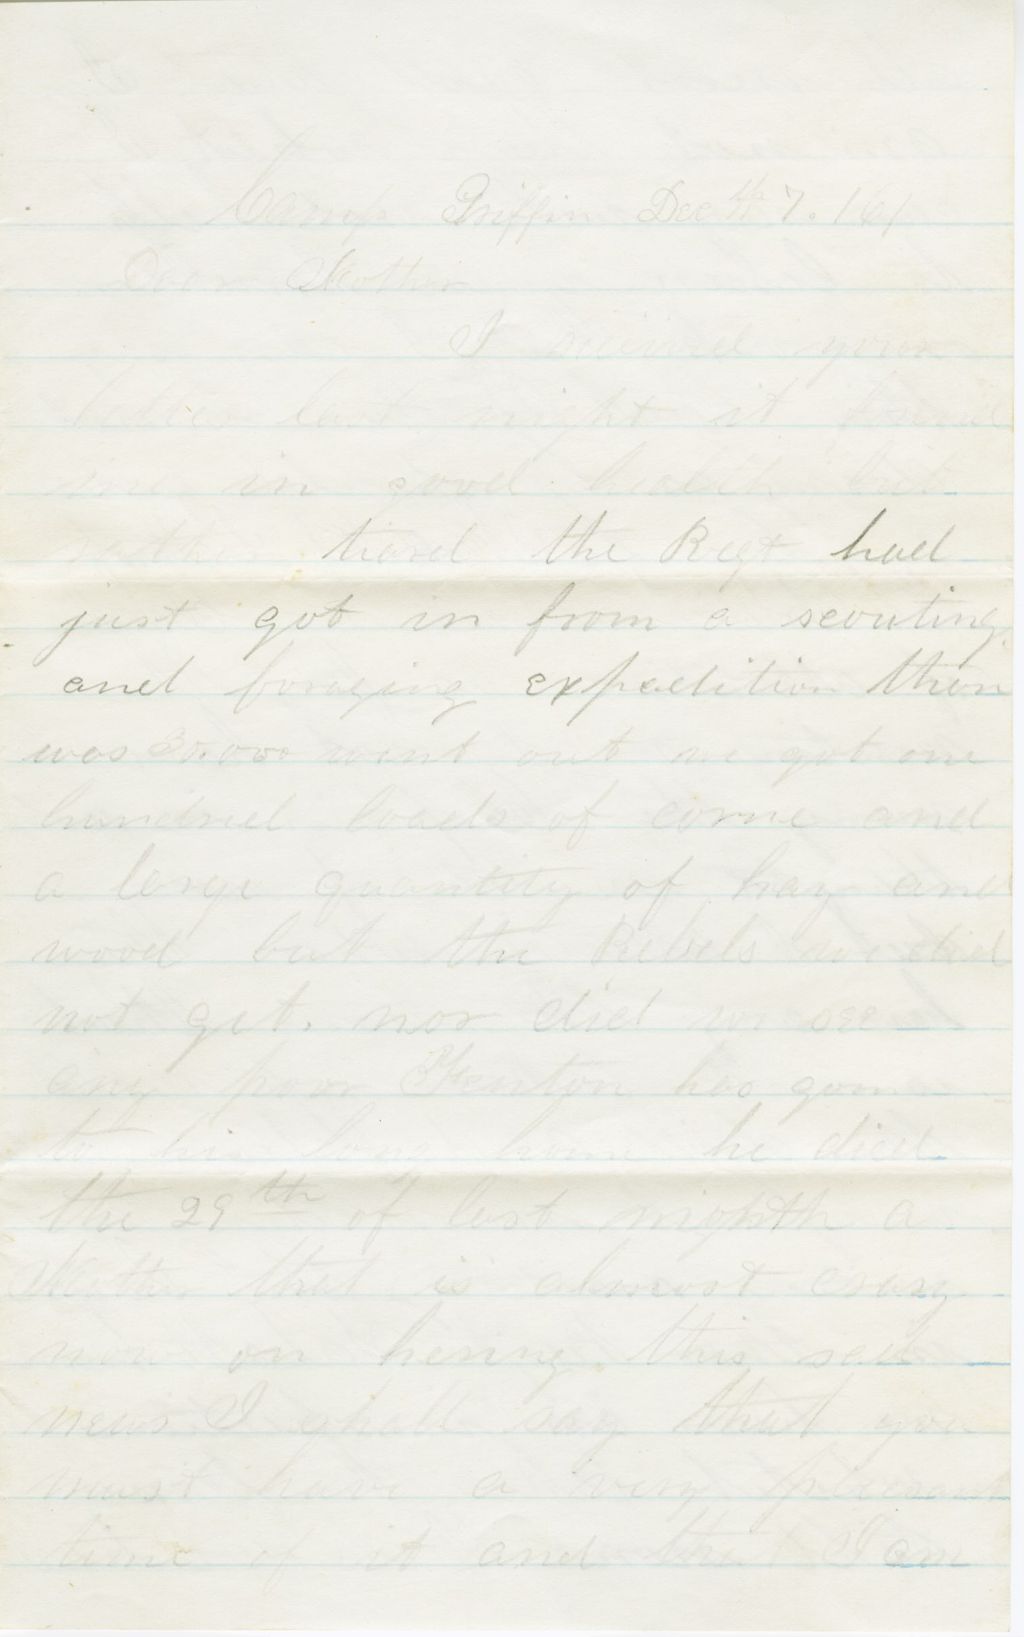 Camp Griffin Dec th 7. 161
Dear Mother
I recived your
letter last night it found
me in good health but
rather tierd the Regt had
just got in from a scouting
and foraging expedition thare
was 30.000 went out we got one
hundred loads of corne and
a large quantity of hay and
wood but the Rebels we did
not get. nor did we see
any poor has gone
to his long home he died
the 29th of last month a
Mother that is almost crazy
now on hering this sad
news I shall say that you
must have a very pleasant
time of it and that I am